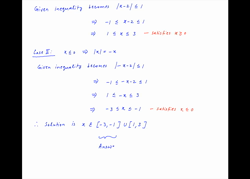 Given inequality becomes |x-2| ≤ 1
⇒ -1 ≤ x-2 ≤ 1
⇒ 1 ≤ x ≤ 3 — satisfies x≥0
Case II: x≤0 ⇒ |x| = -x
Given inequality becomes |-x-2| ≤ 1
⇒ -1 ≤ -x-2 ≤ 1
⇒ 1 ≤ -x ≤ 3
⇒ -3 ≤ x ≤ -1 — satisfies x≤0
∴ Solution is x ∈ [-3,-1] ∪ [1,3]
Answer